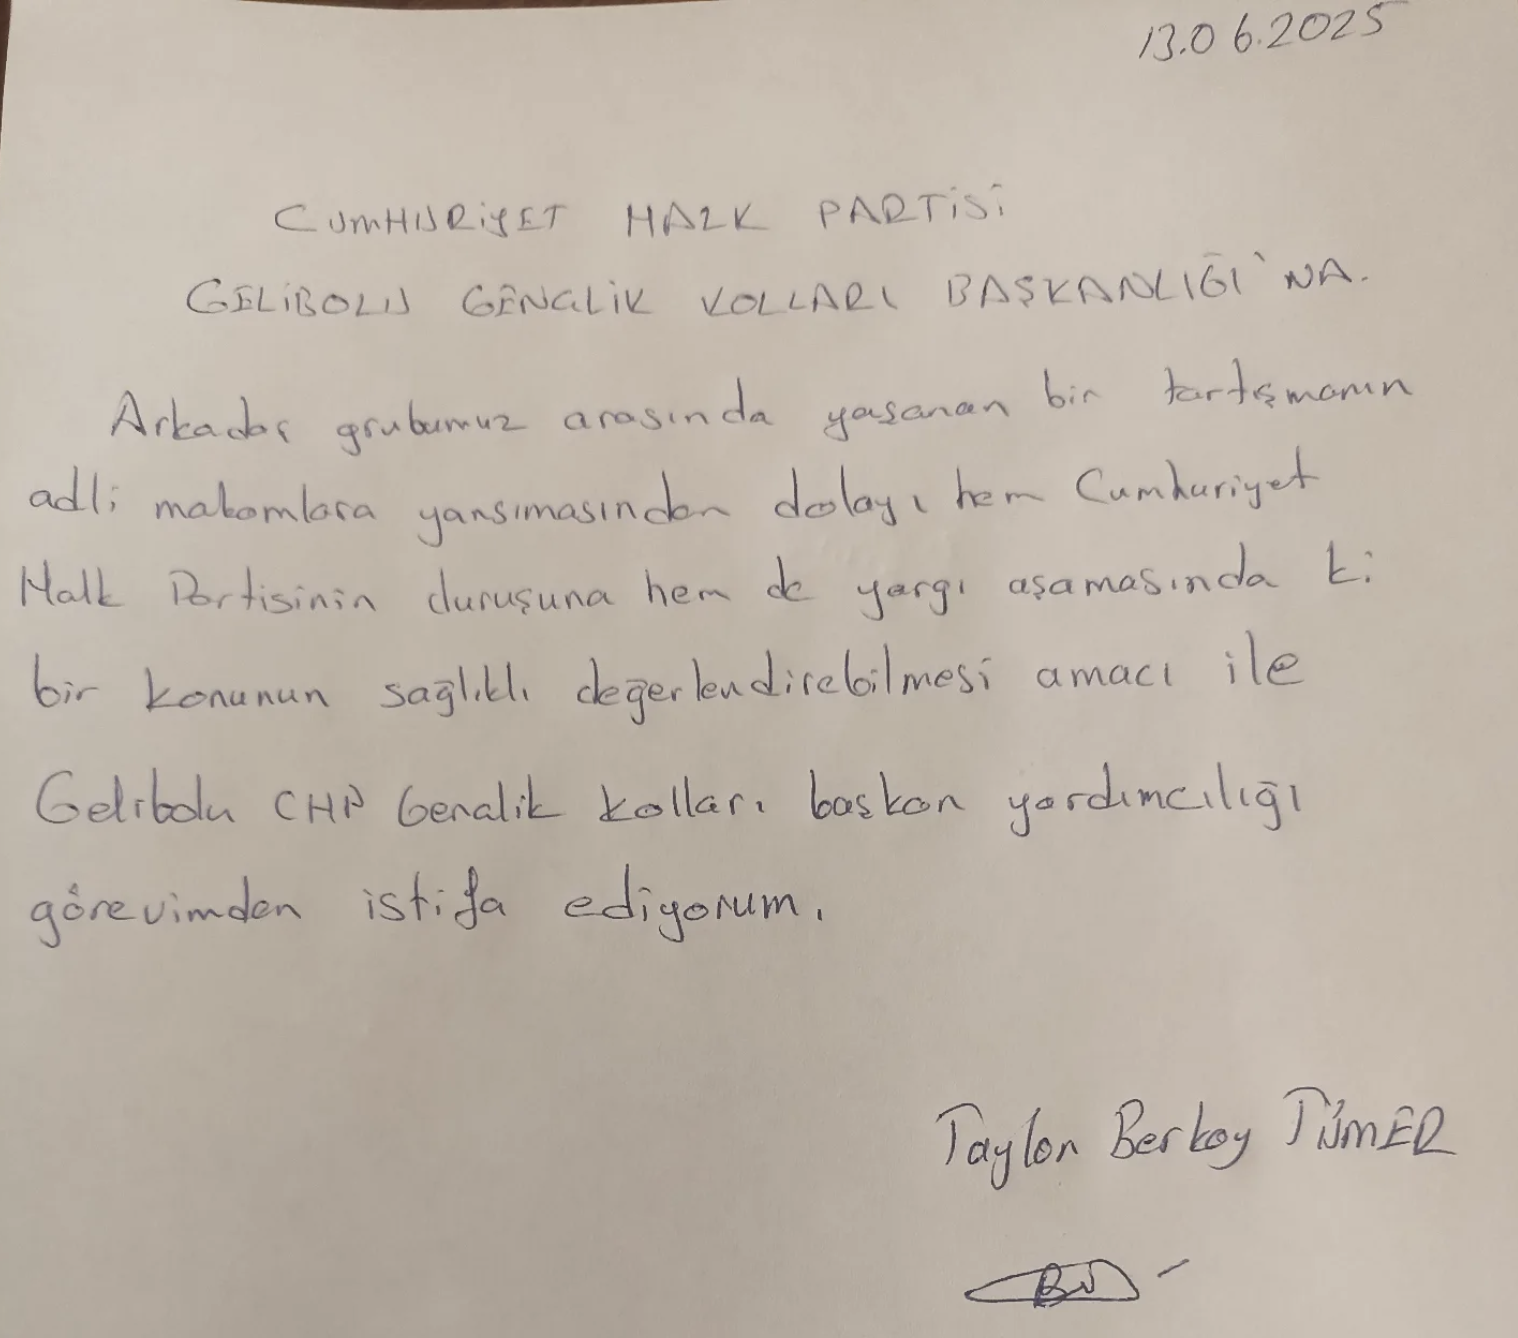 13.06.2025
CUMHURİYET HALK PARTİSİ
GELİBOLU GENÇLİK KOLLARI BAŞKANLIĞI'NA.
Arkadaş grubumuz arasında yaşanan bir tartışmanın
adli makamlara yansımasından dolayı hem Cumhuriyet
Halk Partisinin duruşuna hem de yargı aşamasında ki
bir konunun sağlıklı değerlendirebilmesi amacı ile
Gelibolu CHP Gençlik kolları başkan yardımcılığı
görevimden istifa ediyorum.
Taylan Berkay TÜMER